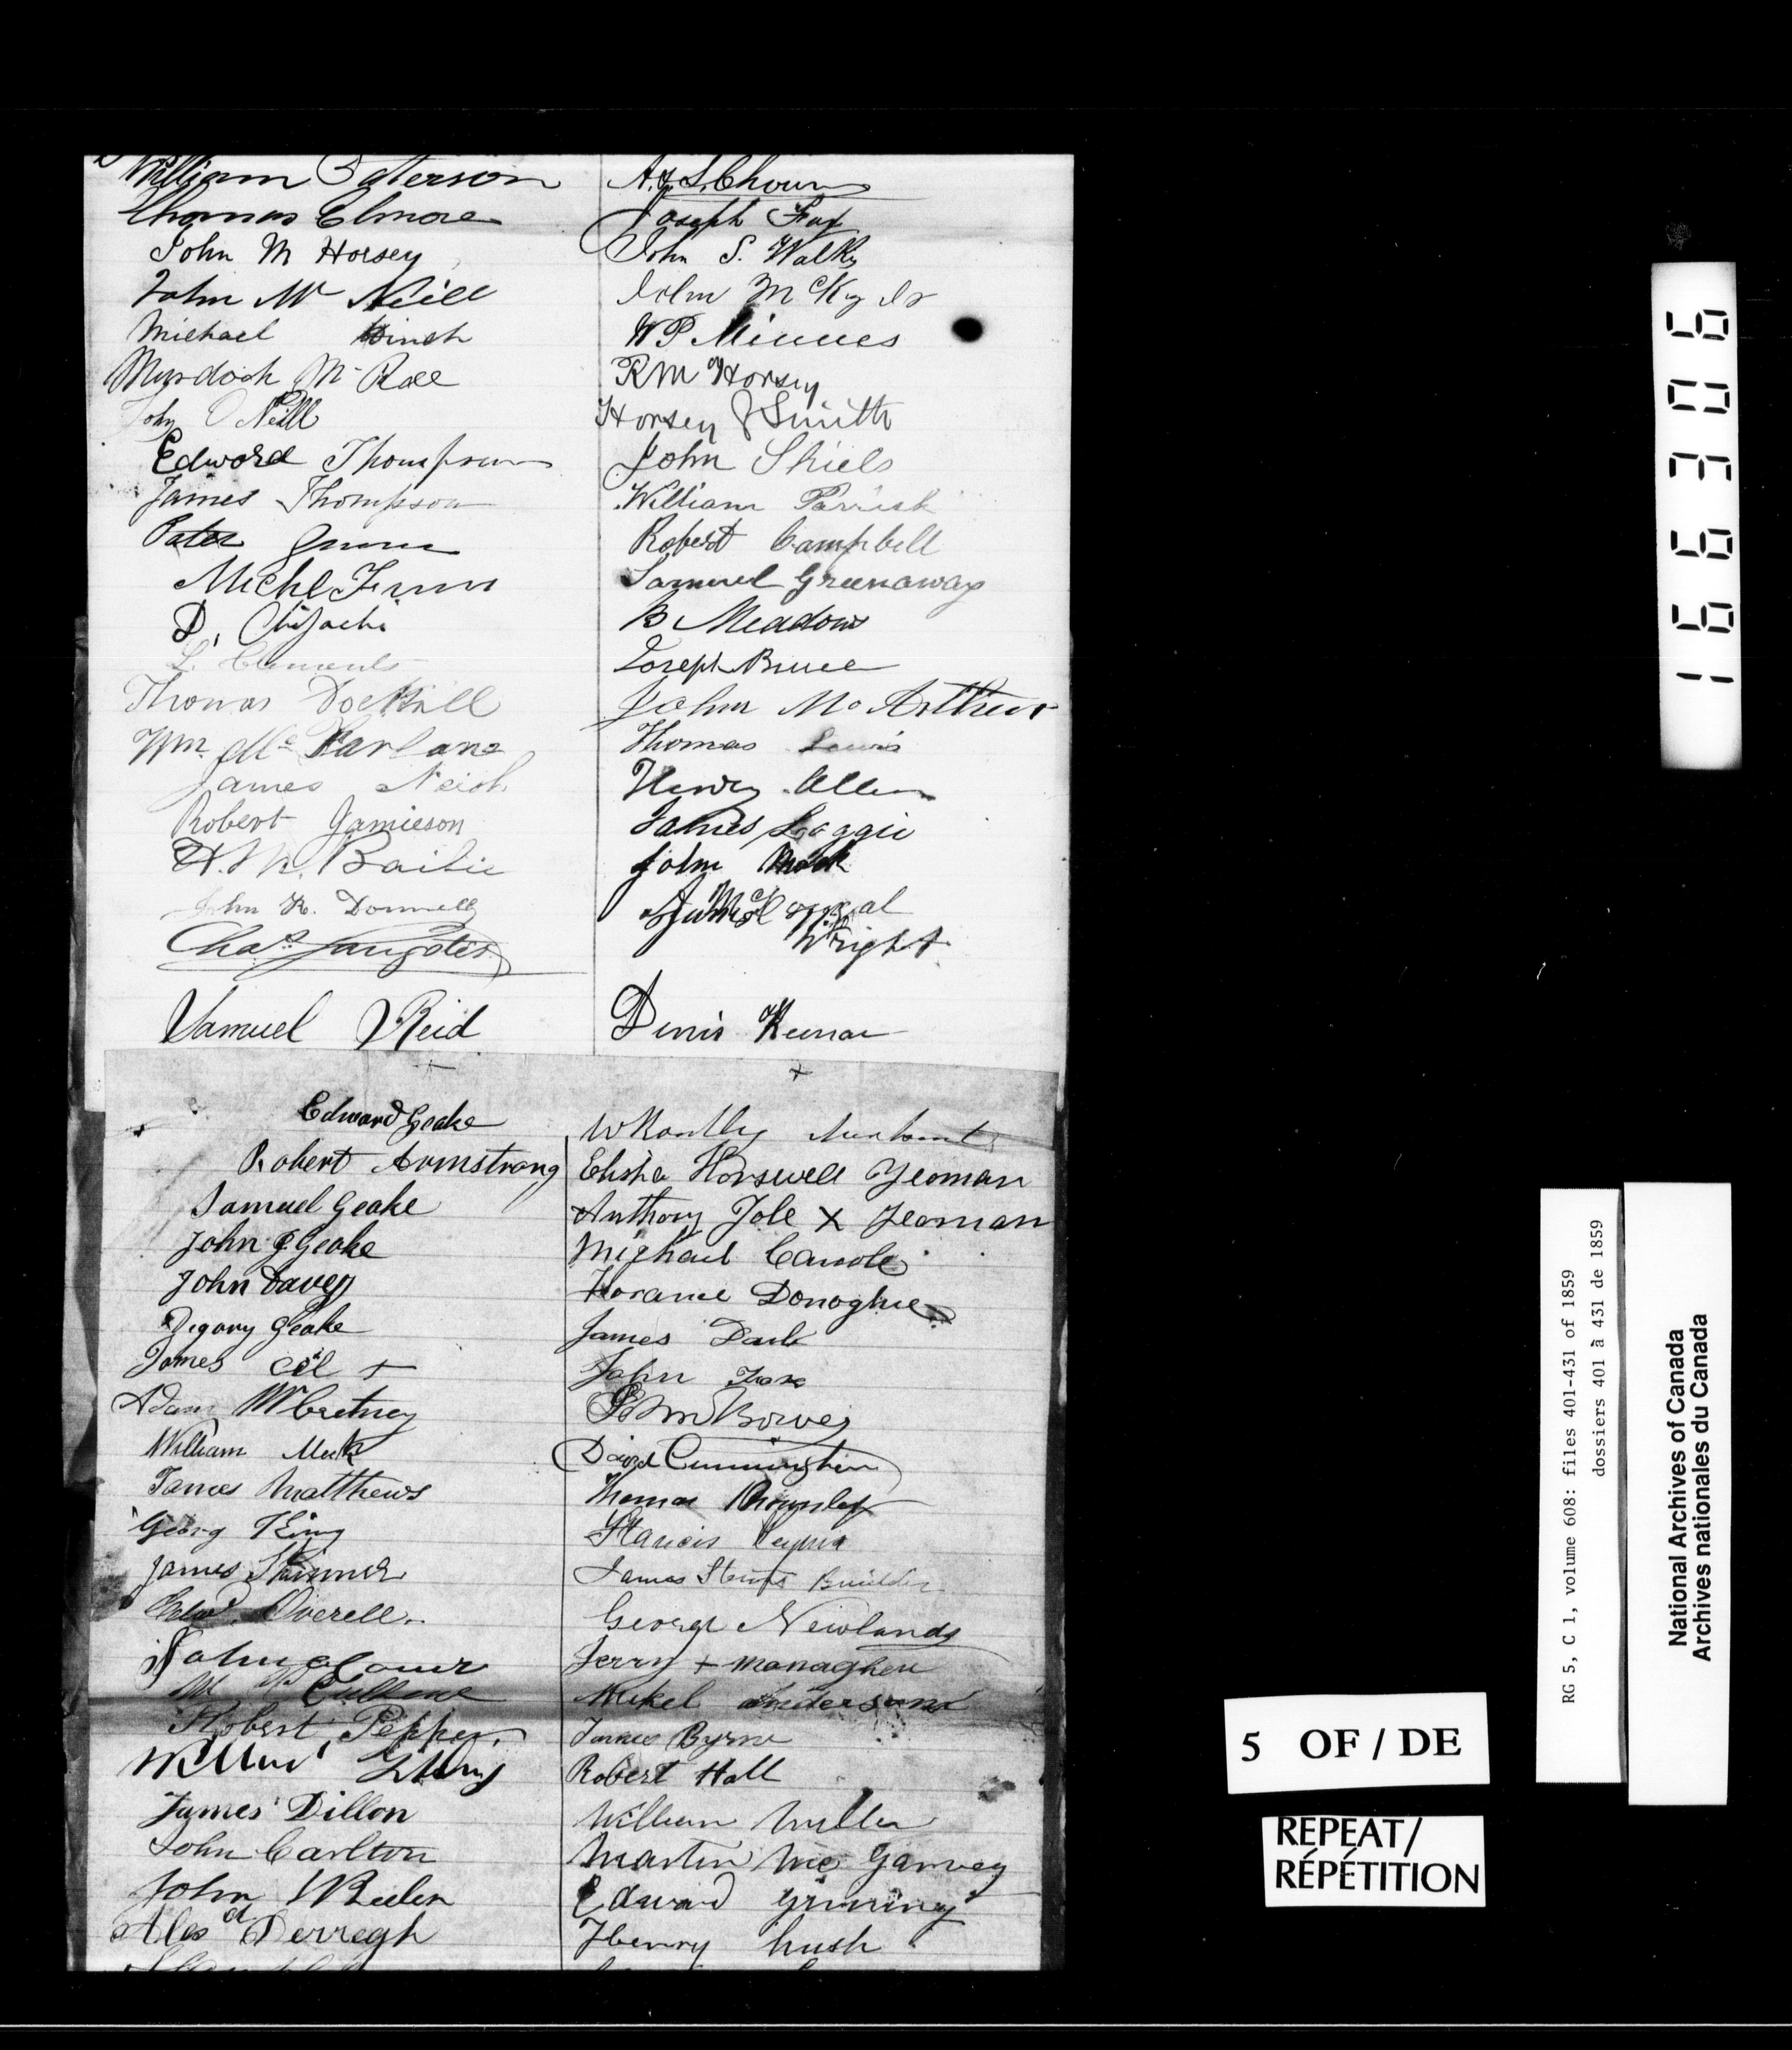 William Paterson
Thomas Elmore
John M Horsey
John Mc Neill
Michael Hinch
Murdoch Mc Rae
John O Neill
Edward Thompson
James Thompson
Peter
Michl
D.
L. Clements
Thomas Dockrill
Wm. Mc Farlane
James Neish
Robert Jamieson
H. M. Bailie
John R. Donnelly
Chas Sangster
Samuel Reid
A. & S. Chown
Joseph Fox
John S. Walker
John McKay Jr
W P Minnes
R M Horsey
Horsey & Smith
John Shiels
William Parrish
Robert Campbell
Samuel Greenaway
B Meadows
Joseph Bruce
John Mc Arthur
Thomas Lewis
Henry Allen
James Laggie
John Mock
Wright
Denis Keenan
Edward Geake
Robert Armstrong
Samuel Geake
John J. Geake
John Davey
Digory Geake
James Cil +
Adam McCretney
William Meek
James Matthews
Georg King
James Skinner
Edwd. Overell.
John
W
Robert Pepper
James Dillon
John Carlton
John
Alexd Derragh
Elisha Horswell Yeoman
Anthony Tole X Yeoman
Michael Carrole
Horance Donoghue
James
John Fox
Bowes
David Cunningham
Thomas Brownley
Francis
James Builder
George Newlands
Jerry + Managhen
Mikel anderson
James Byrne
Robert Hall
William Miller
Martin Mc Garvey
Edward
Henry hush
166306
RG 5, C 1, volume 608: files 401-431 of 1859
dossiers 401 à 431 de 1859
National Archives of Canada
Archives nationales du Canada
5 OF / DE
REPEAT/
RÉPÉTITION